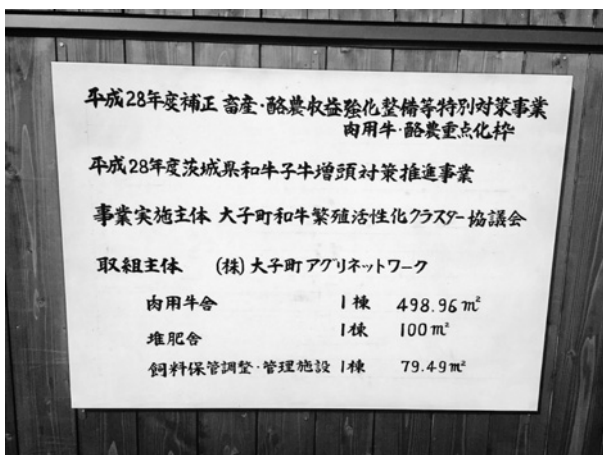 平成28年度補正 畜産・酪農収益強化整備等特別対策事業
肉用牛・酪農重点化枠
平成28年度茨城県和牛子牛増頭対策推進事業
事業実施主体 大子町和牛繁殖活性化クラスター協議会
取組主体 (株)大子町アグリネットワーク
肉用牛舎 1棟 498.96㎡
堆肥舎 1棟 100㎡
飼料保管調整・管理施設 1棟 79.49㎡